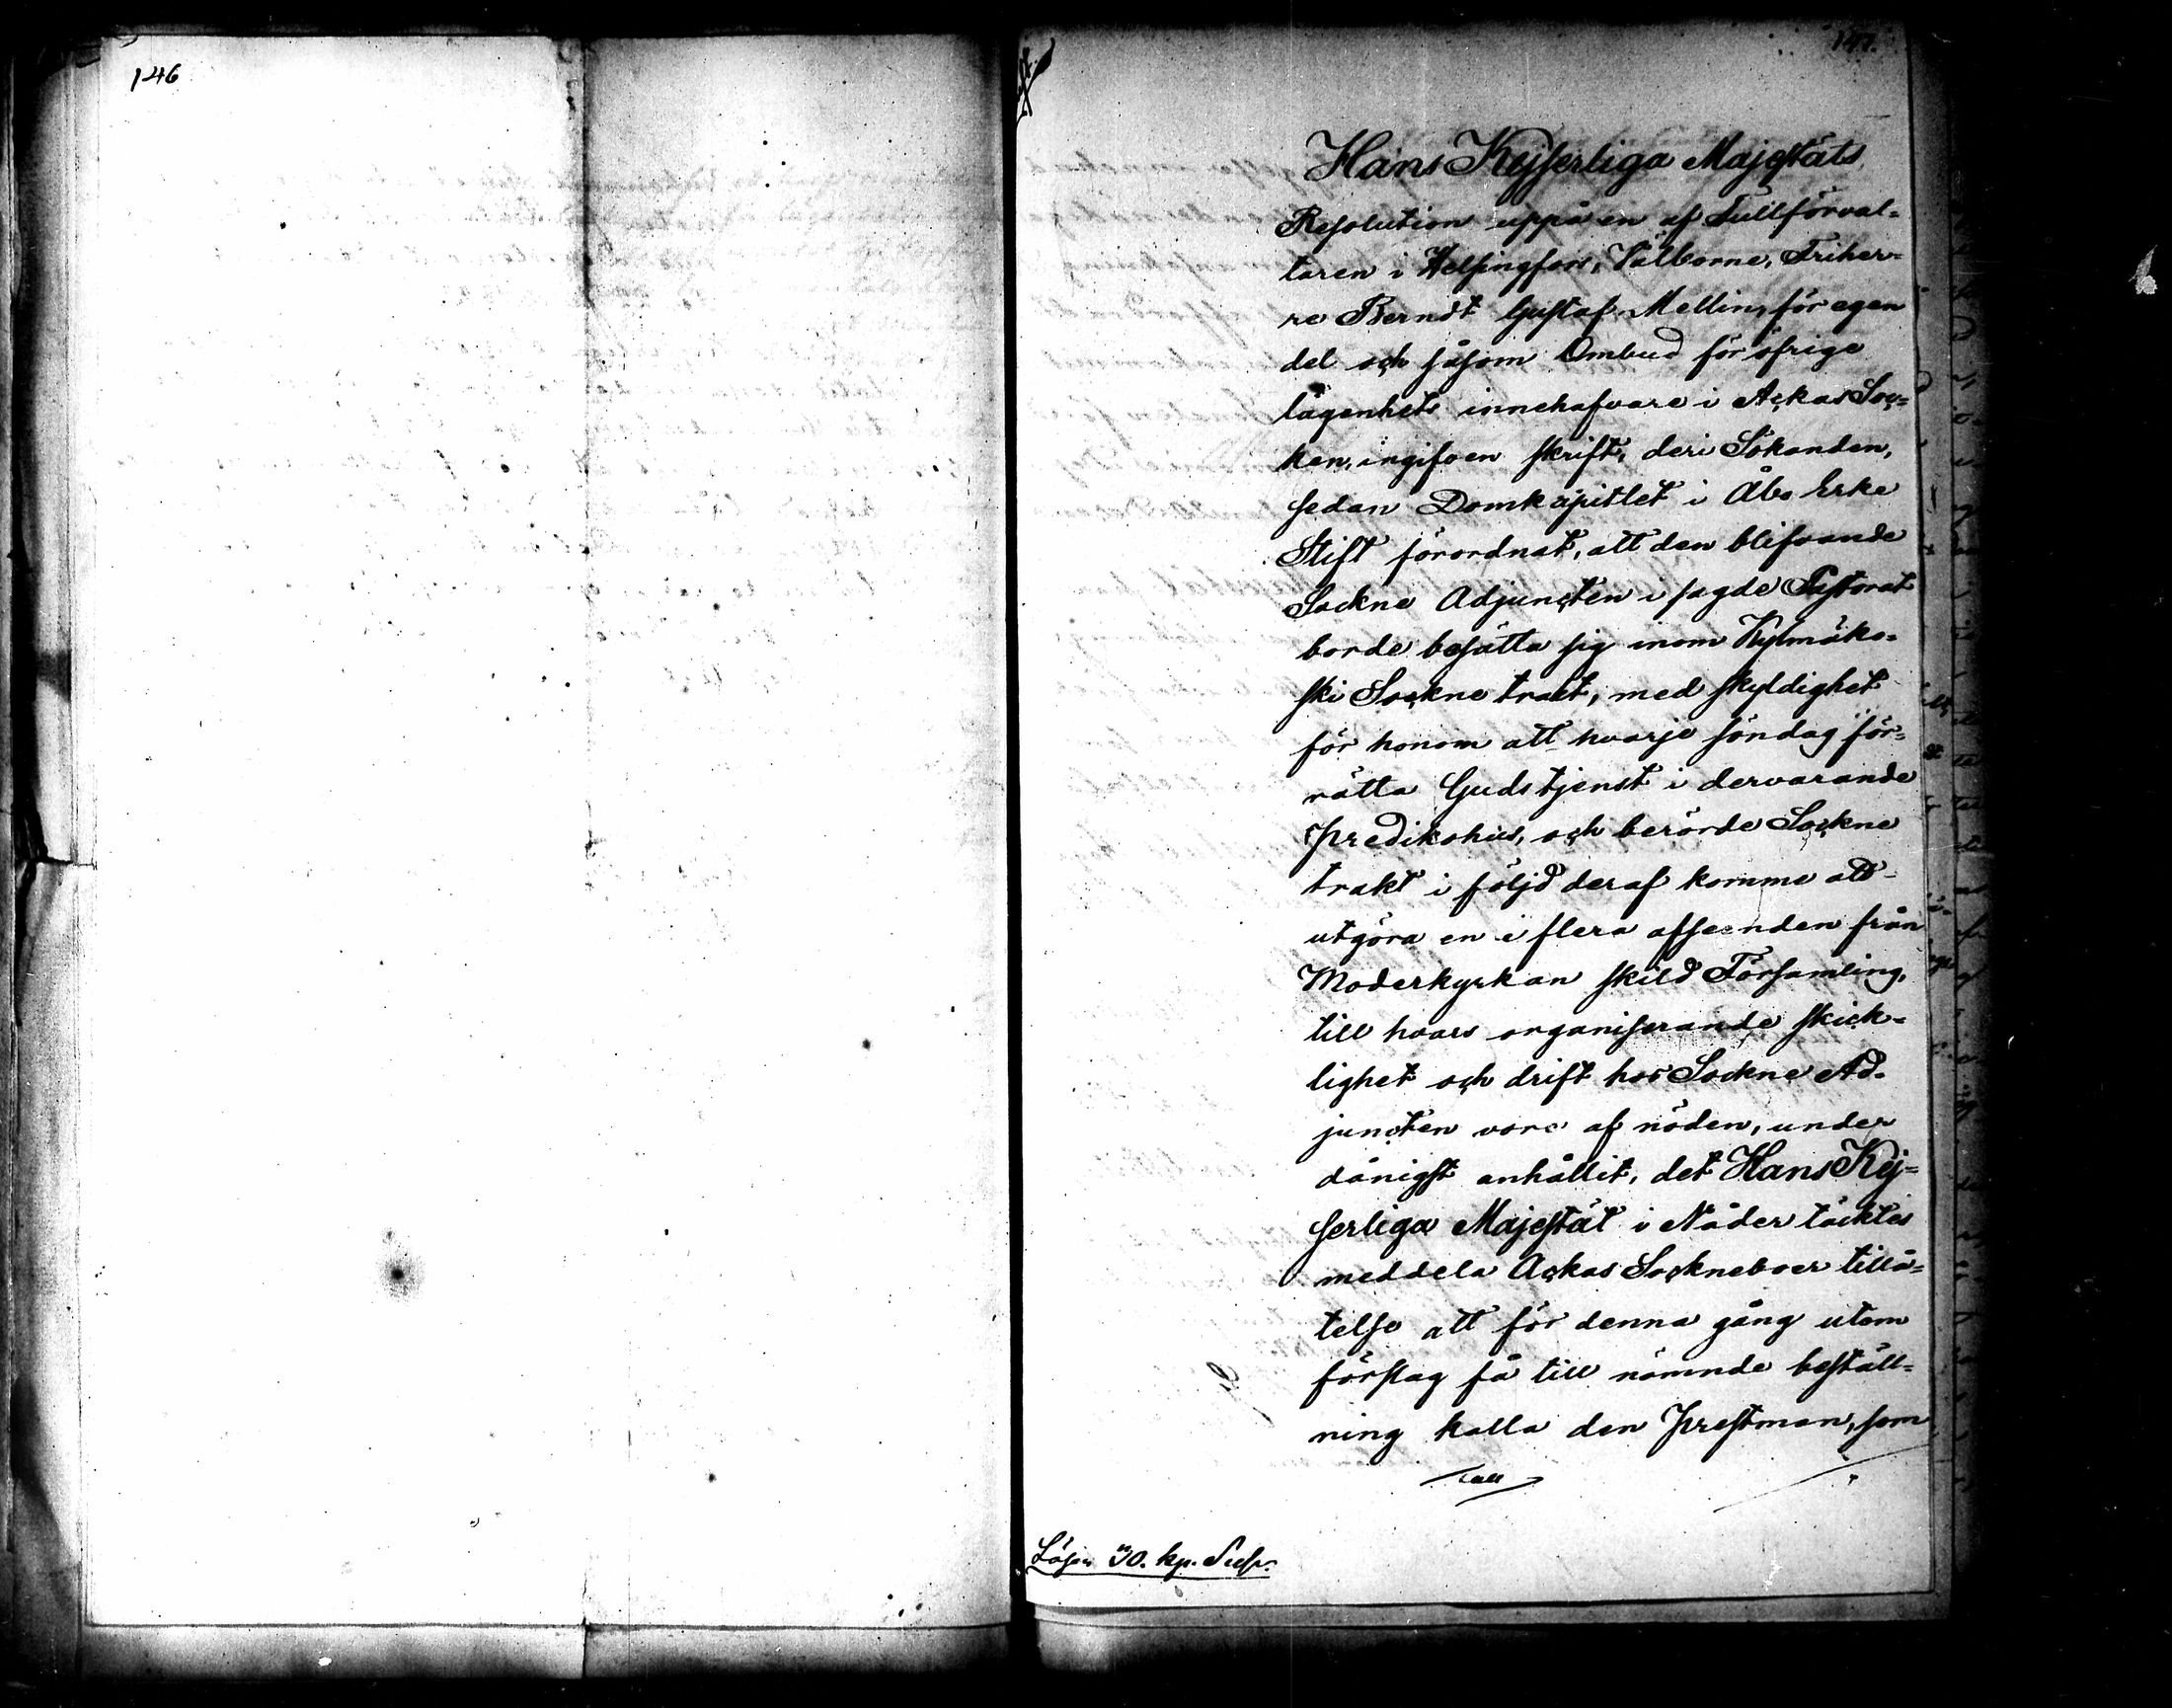 146
147.
Hans Kejserliga Majestäts
Resolution uppå en af Tullförval=
taren i Helsingfors, Välborne, Friher=
re Berndt Gustaf Mellin, för egen
del och såsom Ombud för öfrige
lägenhets innehafvare i Ackas Soc=
ken, ingifven skrift, deri Sökanden,
sedan Domkapitlet i Åbo Erke
Stift förordnat, att den blifvande
Sockne Adjuncten i sagde Pastorat
borde besätta sig inom Kylmäko=
ski Sockne tract, med skyldighet
för honom att hvarje söndag för=
rätta Gudstjenst i dervarande
Predikohus, och berörde Sockne
trakt i följd deraf komme att
utgöra en i flera afseenden från
Moderkyrkan skild Församling,
till hvars organiserande skick=
lighet och drift hos Sockne Ad=
juncten vore af nöden, under
dånigst anhållit, det Hans Kej=
serliga Majestät i Nåder täcktes
meddela Ackas Sockneboer tillå=
telse att för denna gång utom
förslag få till nämnde beställ=
ning kalla den Prestman, som
Lösen 30. kp. Silfr.